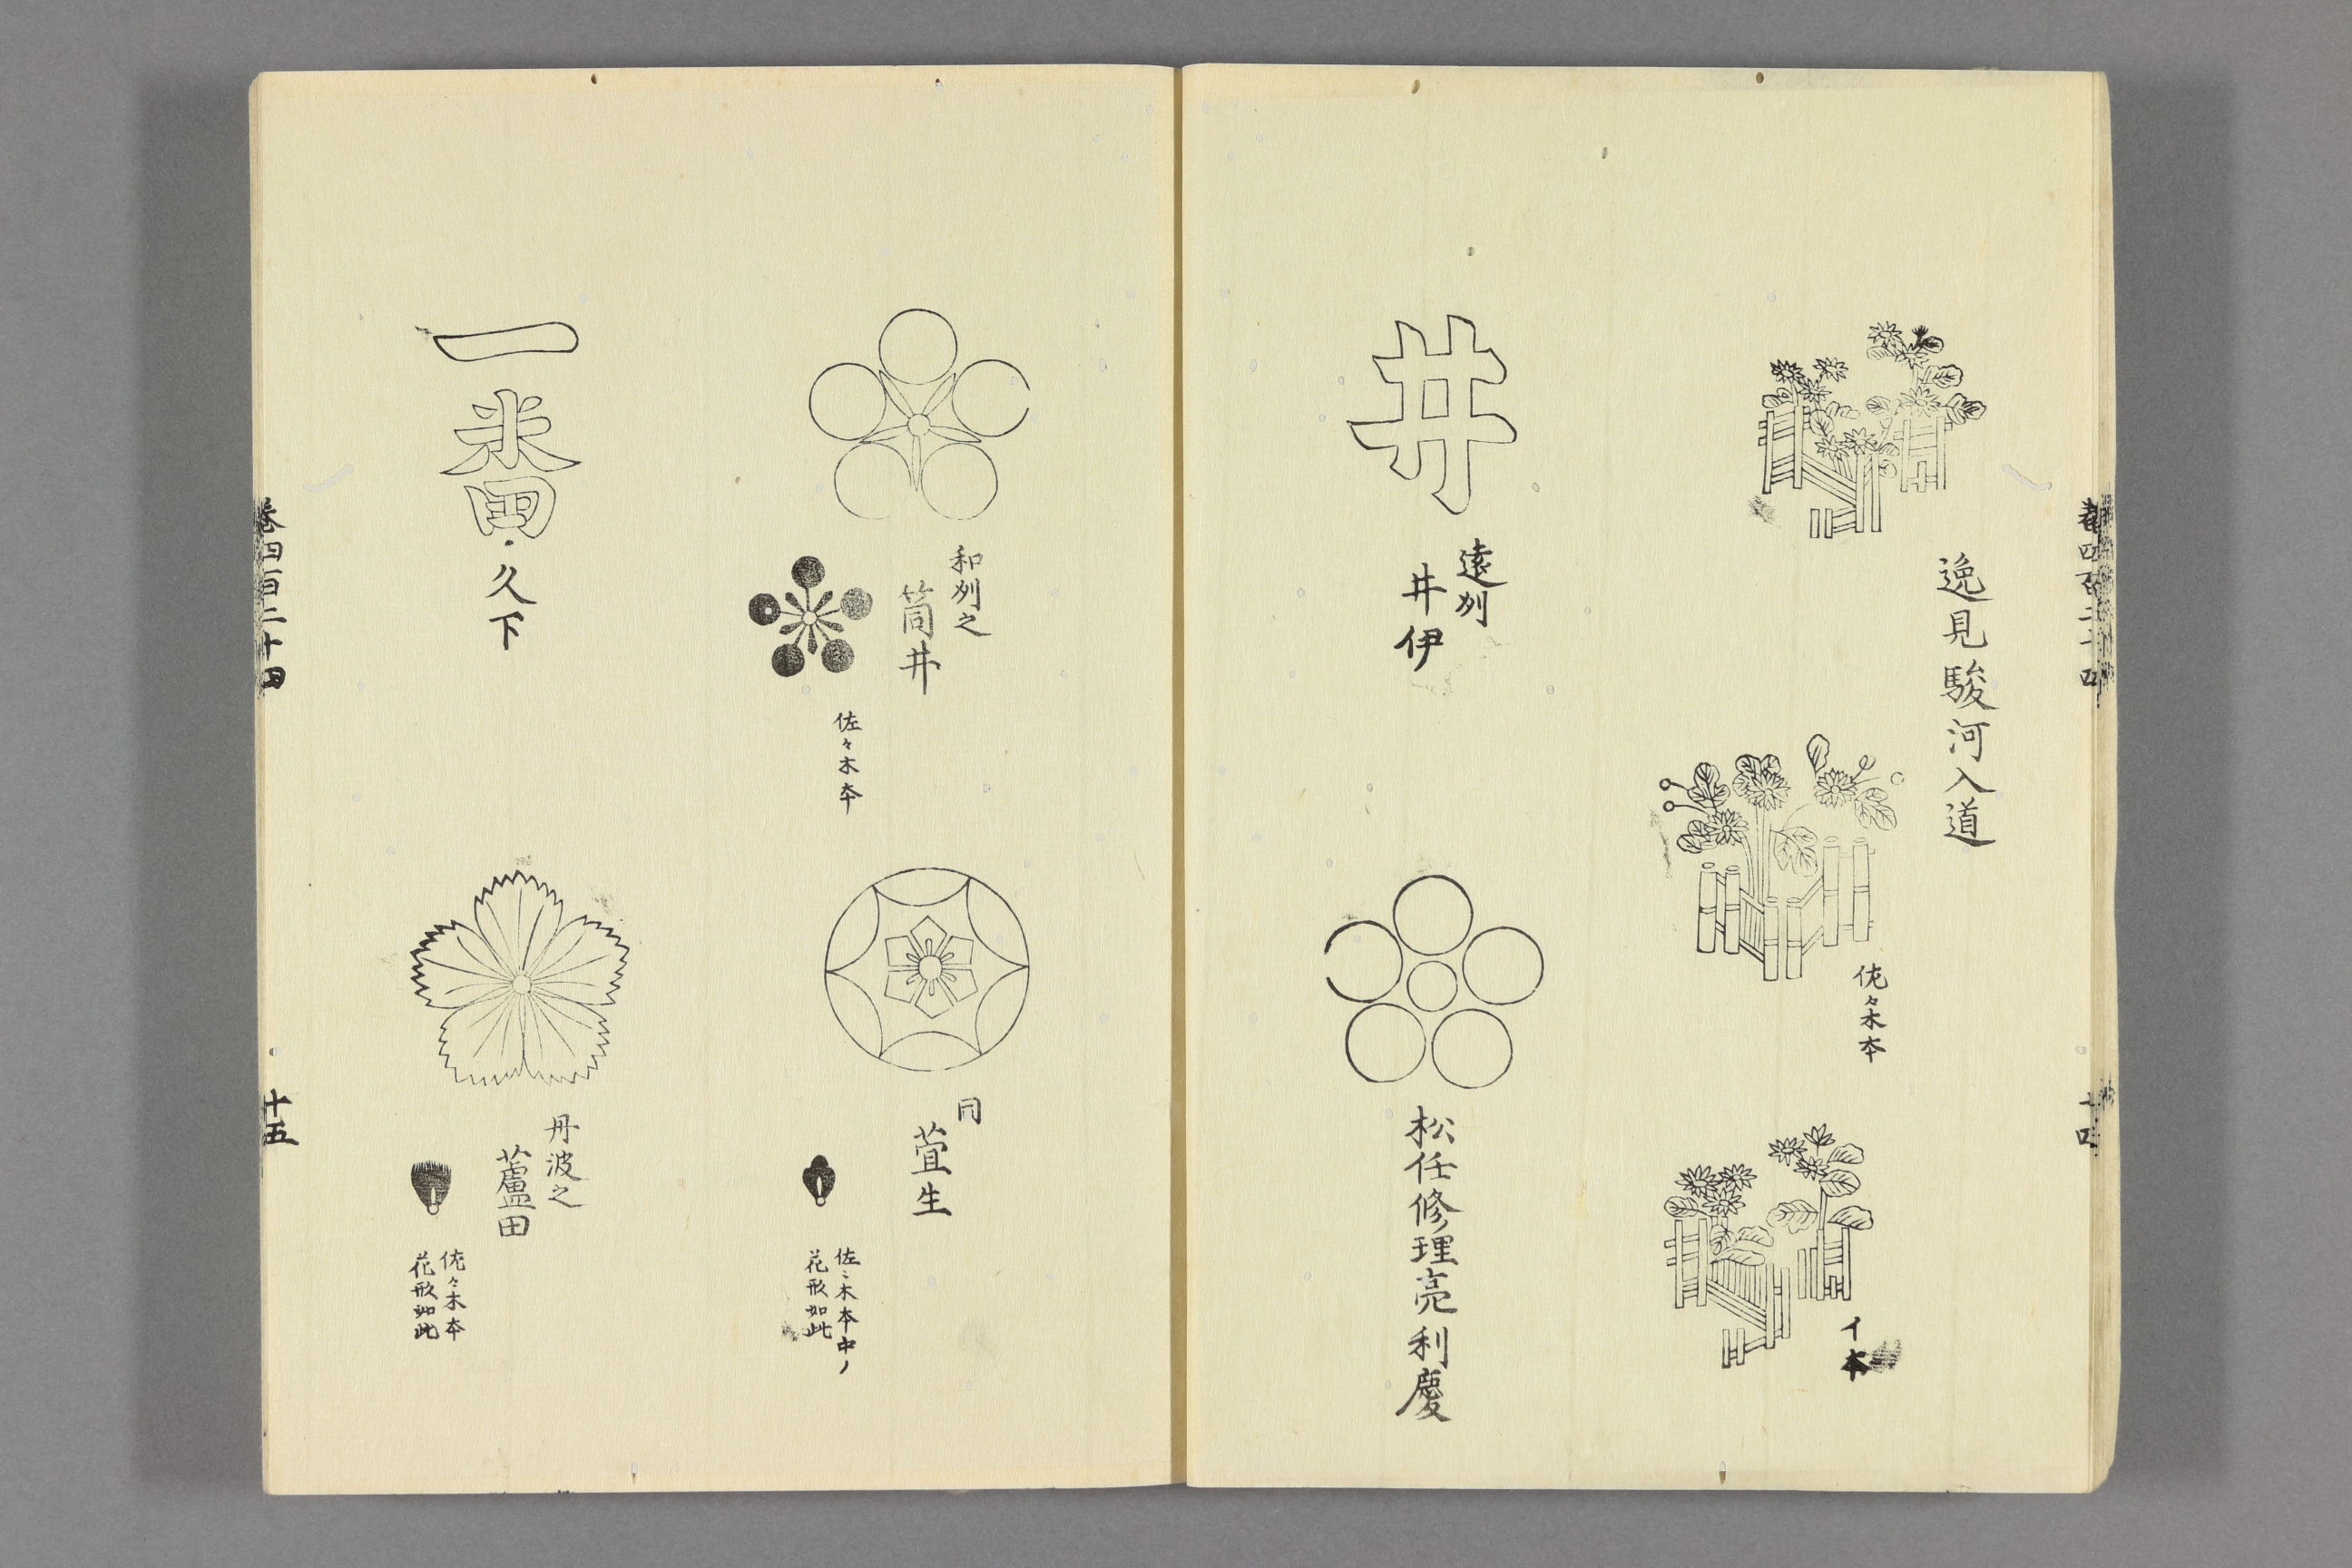 逸見駿河入道
佐々木本
イ本
井
遠州
井伊
松任修理亮利慶
和州之
筒井
佐々木本
同
萱生
佐〻木本中ノ
花形如此
一番
久下
丹波之
蘆田
佐々木本
花形如此
卷四百二十四
十五